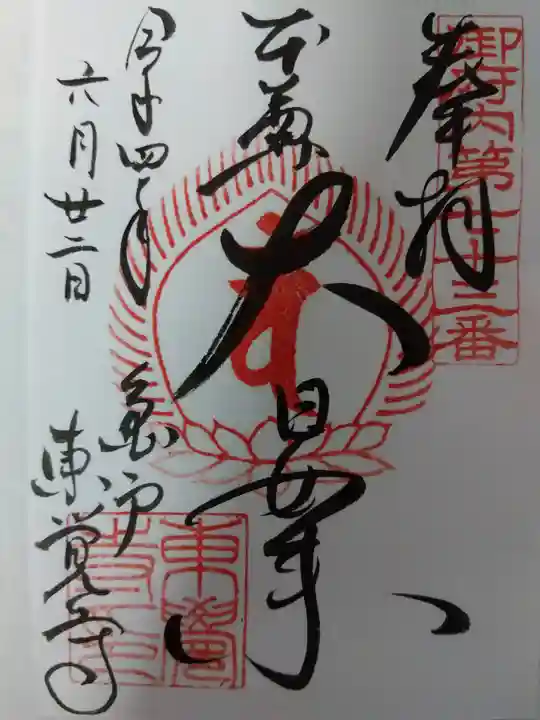 奉拝
御府内第七十三番
本尊
大日如来
令和四年
六月廿二日
亀戸
東覚寺